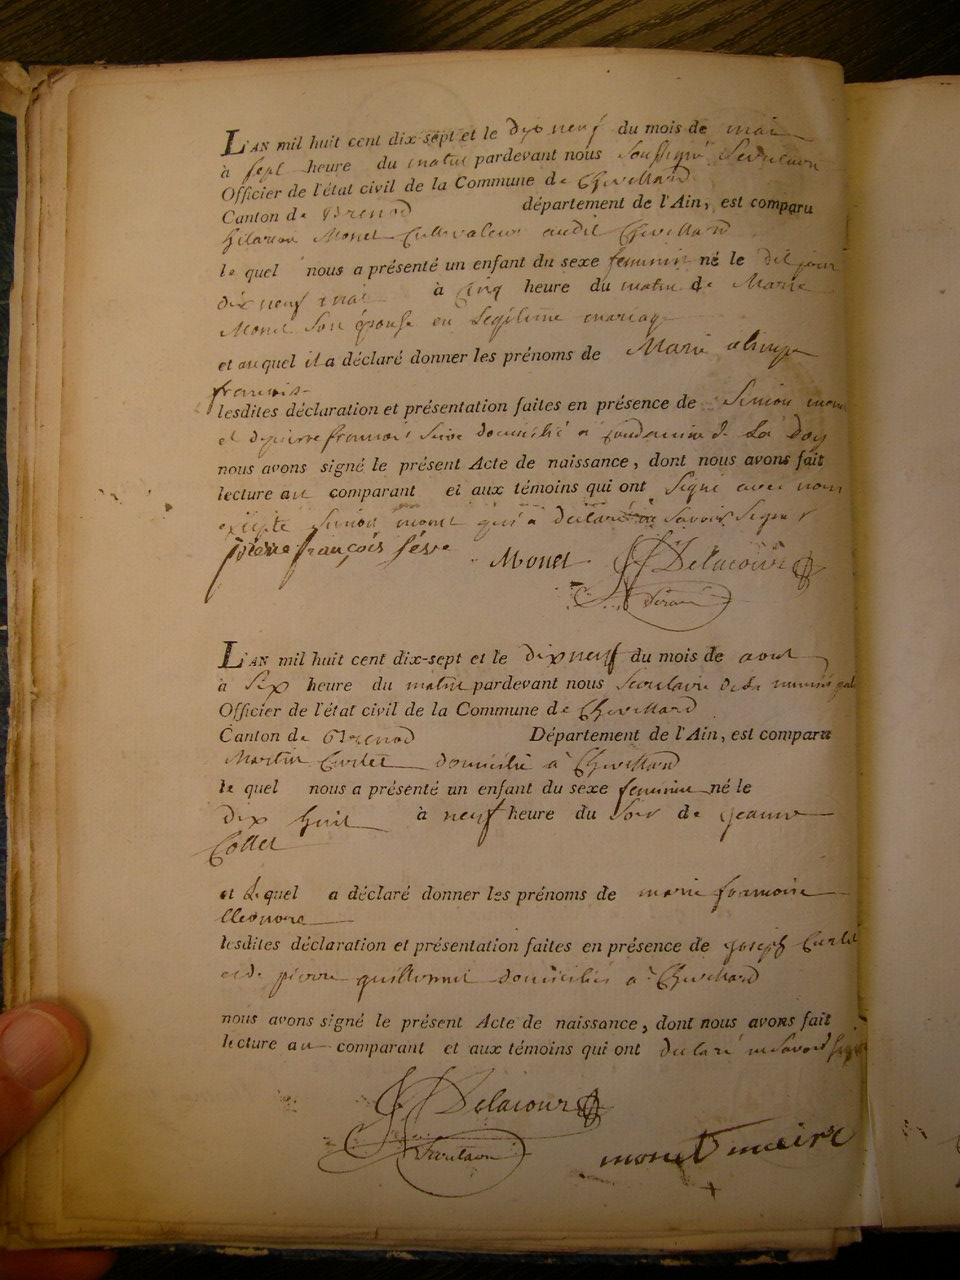 L'AN mil huit cent dix-sept et le dix neuf du mois de mai
à sept heure du matin pardevant nous soussigné Secretaire
Officier de l'état civil de la Commune de Chevillard
Canton de Brenod département de l'Ain, est comparu
hilarion Monet Cultivateur audit Chevillard
le quel nous a présenté un enfant du sexe feminin né le dit jour
dix neuf mai à cinq heure du matin de Marie
Monet Son épouse en Legitime mariage
et auquel il a déclaré donner les prénoms de Marie
lesdites déclaration et présentation faites en présence de Simon monet
et de pierre francois domicilié a de La Doy
nous avons signé le présent Acte de naissance, dont nous avons fait
lecture au comparant et aux témoins qui ont Signé avec nous
excepte Simon monet qui a declaré ne Savoir Signer
pierre françois séve Monet Delacour
L'AN mil huit cent dix-sept et le dix neuf du mois de aout
à Six heure du matin pardevant nous Secretaire de la
Officier de l'état civil de la Commune de Chevillard
Canton de Brenod Département de l'Ain, est comparu
Martin Curlet domicilié à Chevillard
le quel nous a présenté un enfant du sexe feminin né le
dix huit à neuf heure du Soir de jeanne
Collet
et Lequel a déclaré donner les prénoms de marie
lleonore
lesdites déclaration et présentation faites en présence de joseph Curlet
et de pierre guillermet domiciliés a Chevillard
nous avons signé le présent Acte de naissance, dont nous avons fait
lecture au comparant et aux témoins qui ont declaré ne Savoir Signer
Delacour
Secretaire monet maire